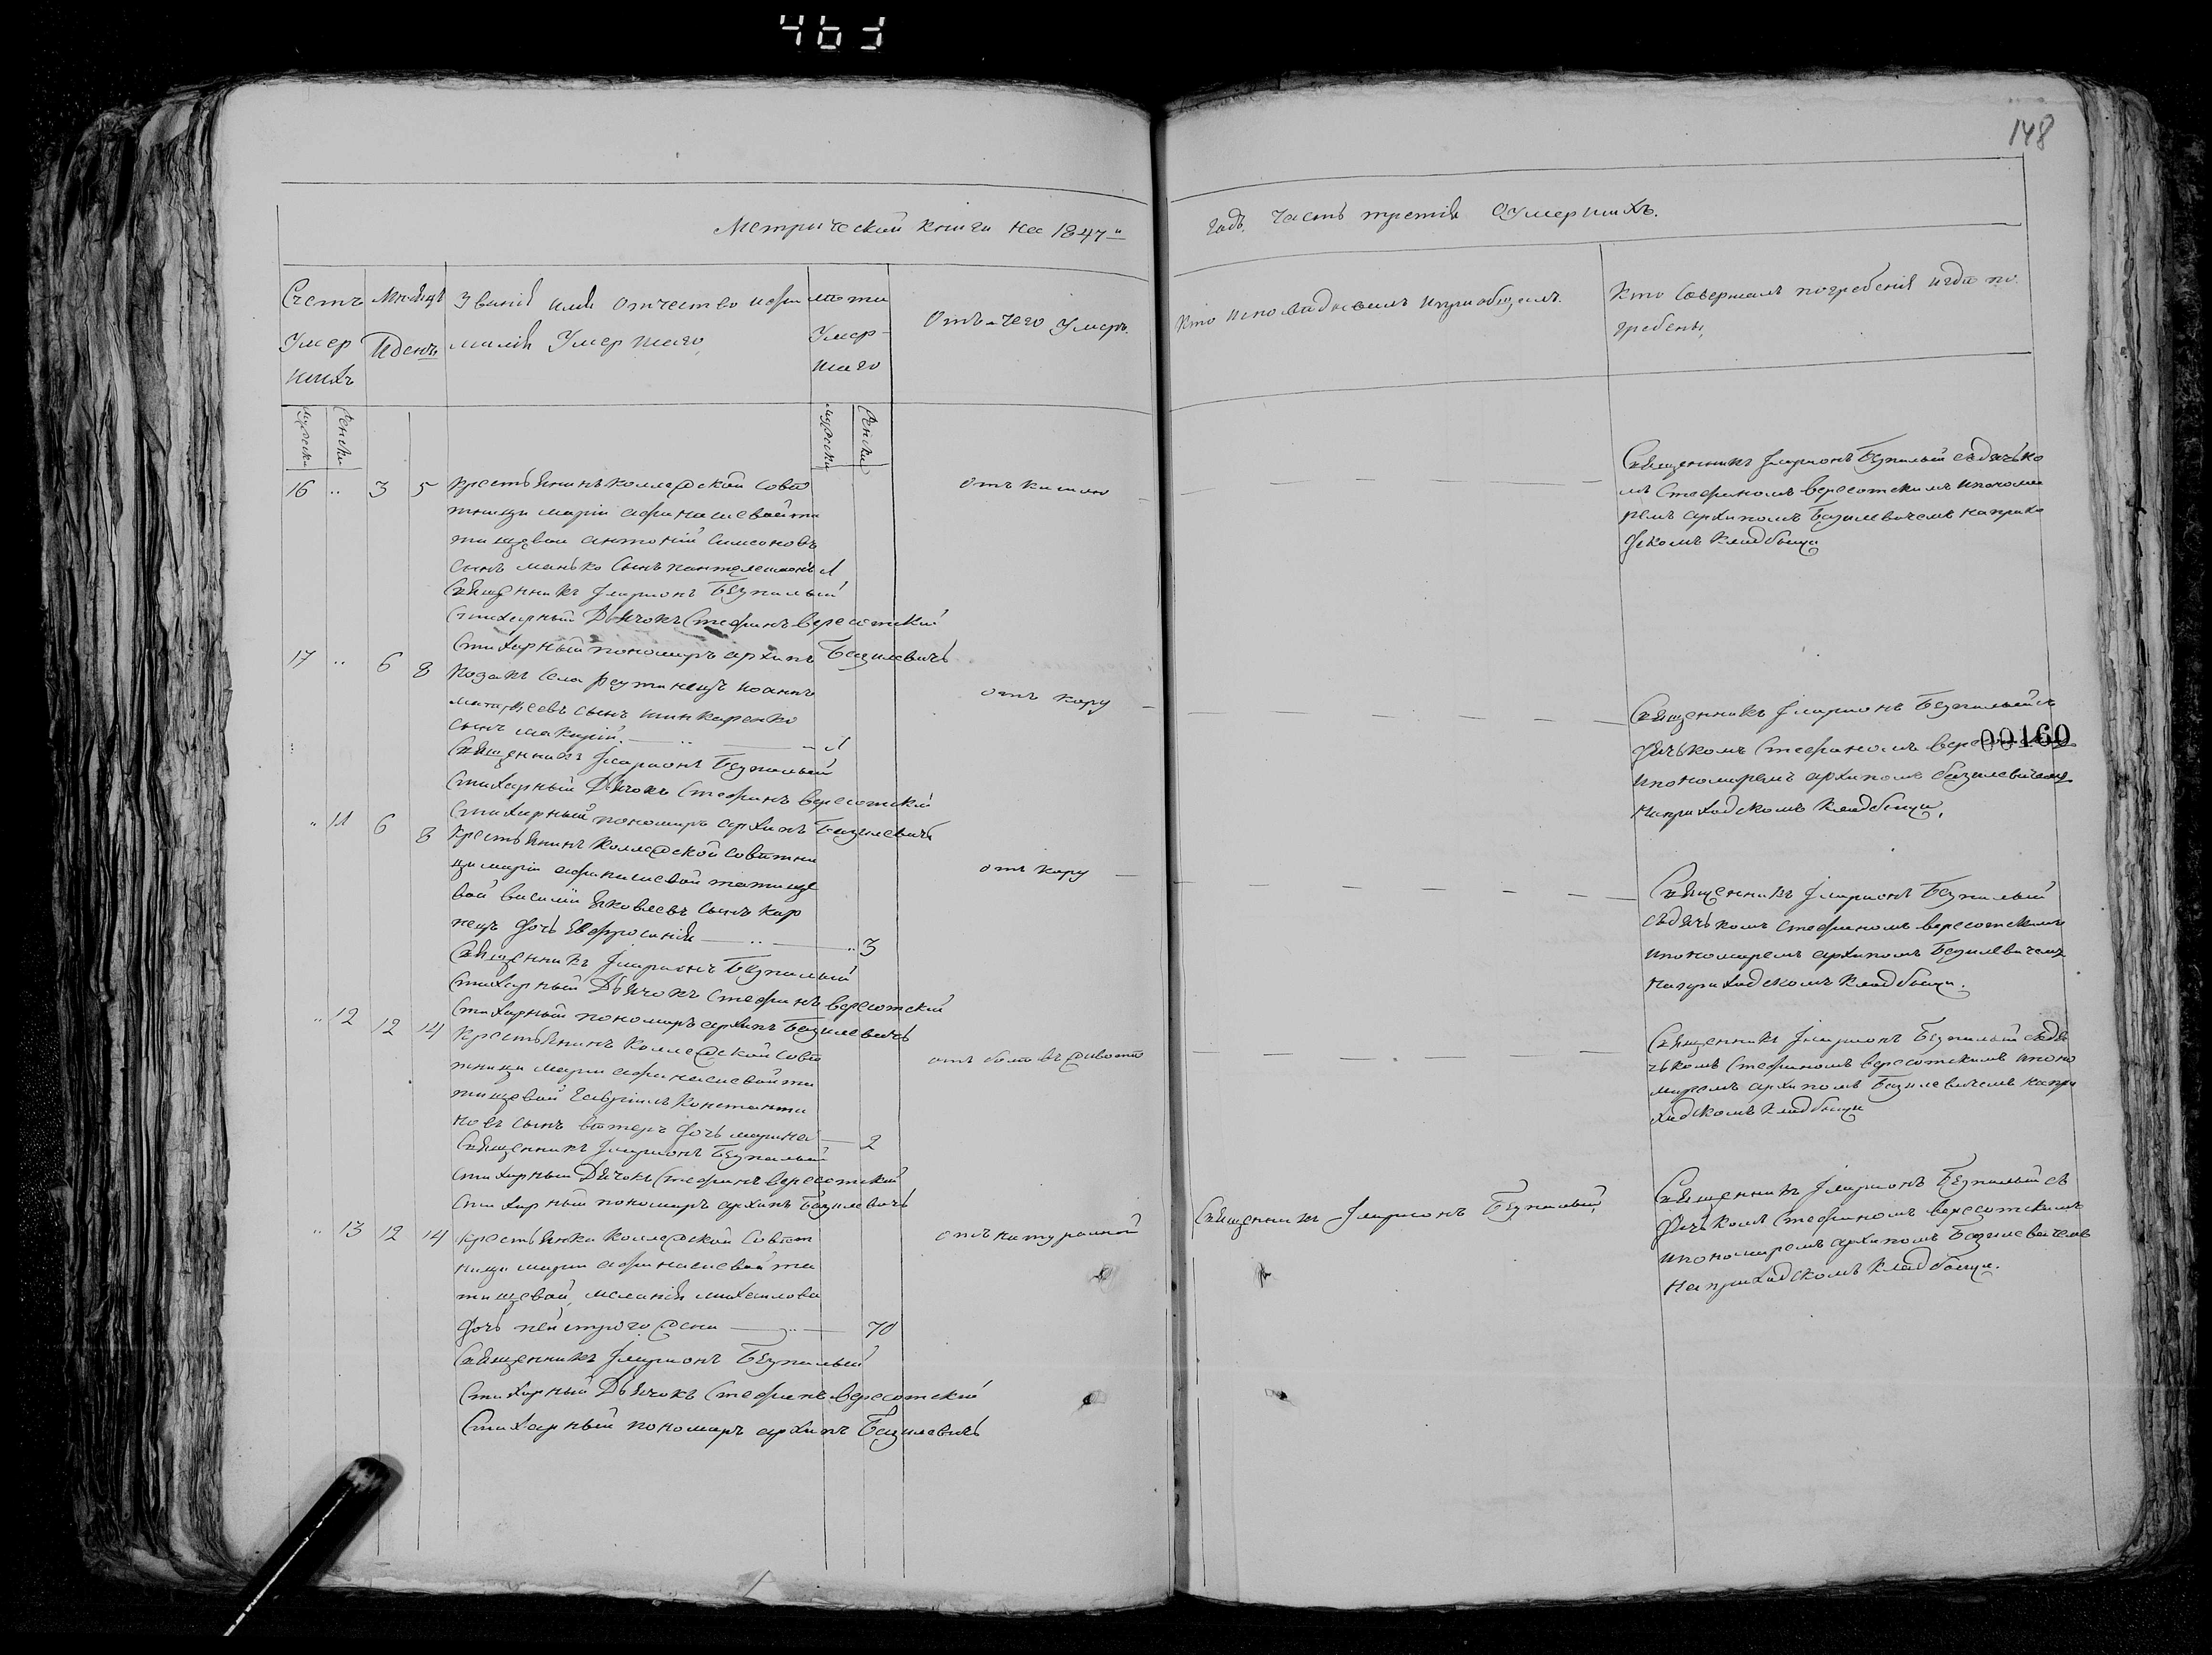 463
148
Метрической книги на 1847й
годъ, часть третія О умершихъ.
Счетъ
Умер
шихъ
Мѣсяцъ
И день
Званіе имя отчество и фа
милія Умершаго
лѣта
Умер-
шаго
Отъ чего Умеръ.
Кто исповѣдовалъ и приобщалъ.
Кто совершалъ погребеніе и гдѣ по-
гребены,
мужеска
женска
мужеска
женска
16 .. 3 5 крестьянинъ коллежской совѣ
тници маріи афанасиевой та
тищевой антоній симеоновъ
сынъ манько сынъ пантелеимонъ 1
Священникъ Іларионъ Безпалый
Стихарный Дьячокъ Стефанъ вересотскій
Стихарный пономарь архипъ Базилевичь
отъ кашлю
Священникъ Іларионъ Безпалый съ дьячько
мъ Стефаномъ вересотскимъ и понома
ремъ архипомъ Базилевичемъ на прихо
дскомъ кладбищи
17 .. 6 8 Козакъ села реутинецъ иоаннъ
матфеевъ сынъ шинкаренко
сынъ макарій 1
Священникъ Іларионъ Безпалый
Стихарный Дьячокъ Стефанъ вересотскій
Стихарный пономарь архипъ Базилевичь
отъ кору
Священникъ Іларионъ Безпалый съ
дьячькомъ Стефаномъ
00160
и пономаремъ архипомъ базилевичемъ
на приходскомъ кладбищи,
.. 11 6 8 крестьянинъ коллежской совѣтни
ци маріи афанасиевой татище
вой василій яковлевъ сынъ кор
нецъ дочь Евфросинія .. 3
Священникъ Іларионъ Безпалый
Стихарный Дьячокъ Стефанъ вересотский
Стихарный пономарь архипъ Базилевичь
отъ кору
Священникъ Іларионъ Безпалый
съ дьячькомъ стефаномъ вересотскимъ
и пономаремъ архипомъ Базилевичемъ
на приходскомъ кладбищи.
.. 12 12 14 крестьянинъ коллежской совѣ
тници марии афанасиевой та
тищевой Гавріилъ Константи
новъ сынъ дочь марина 2
Священникъ Іларионъ Безпалый
Стихарный Дьячокъ Стефанъ вересотский
Стихарный пономарь архипъ Базилевичь
отъ боли въ животѣ
Священникъ Іларионъ Безпалый съ дья
чькомъ Стефаномъ вересотскимъ и поно
маремъ архипомъ Базилевичемъ на при
ходскомъ кладбищи
.. 13 12 14 крестьянка коллежской Совѣт
ници марии афанасиевой та
тищевой, меланія михаилова
дочь жена 70
Священникъ Іларионъ Безпалый
Стихарный Дьячокъ Стефанъ вересотский
Стихарный пономарь архипъ Базилевичь
отъ натуральной
Священникъ Іларионъ Безпалый
Священникъ Іларионъ Безпалый съ
дьячькомъ Стефаномъ вересотскимъ
и пономаремъ архипомъ Базилевичемъ
на приходскомъ кладбищи.